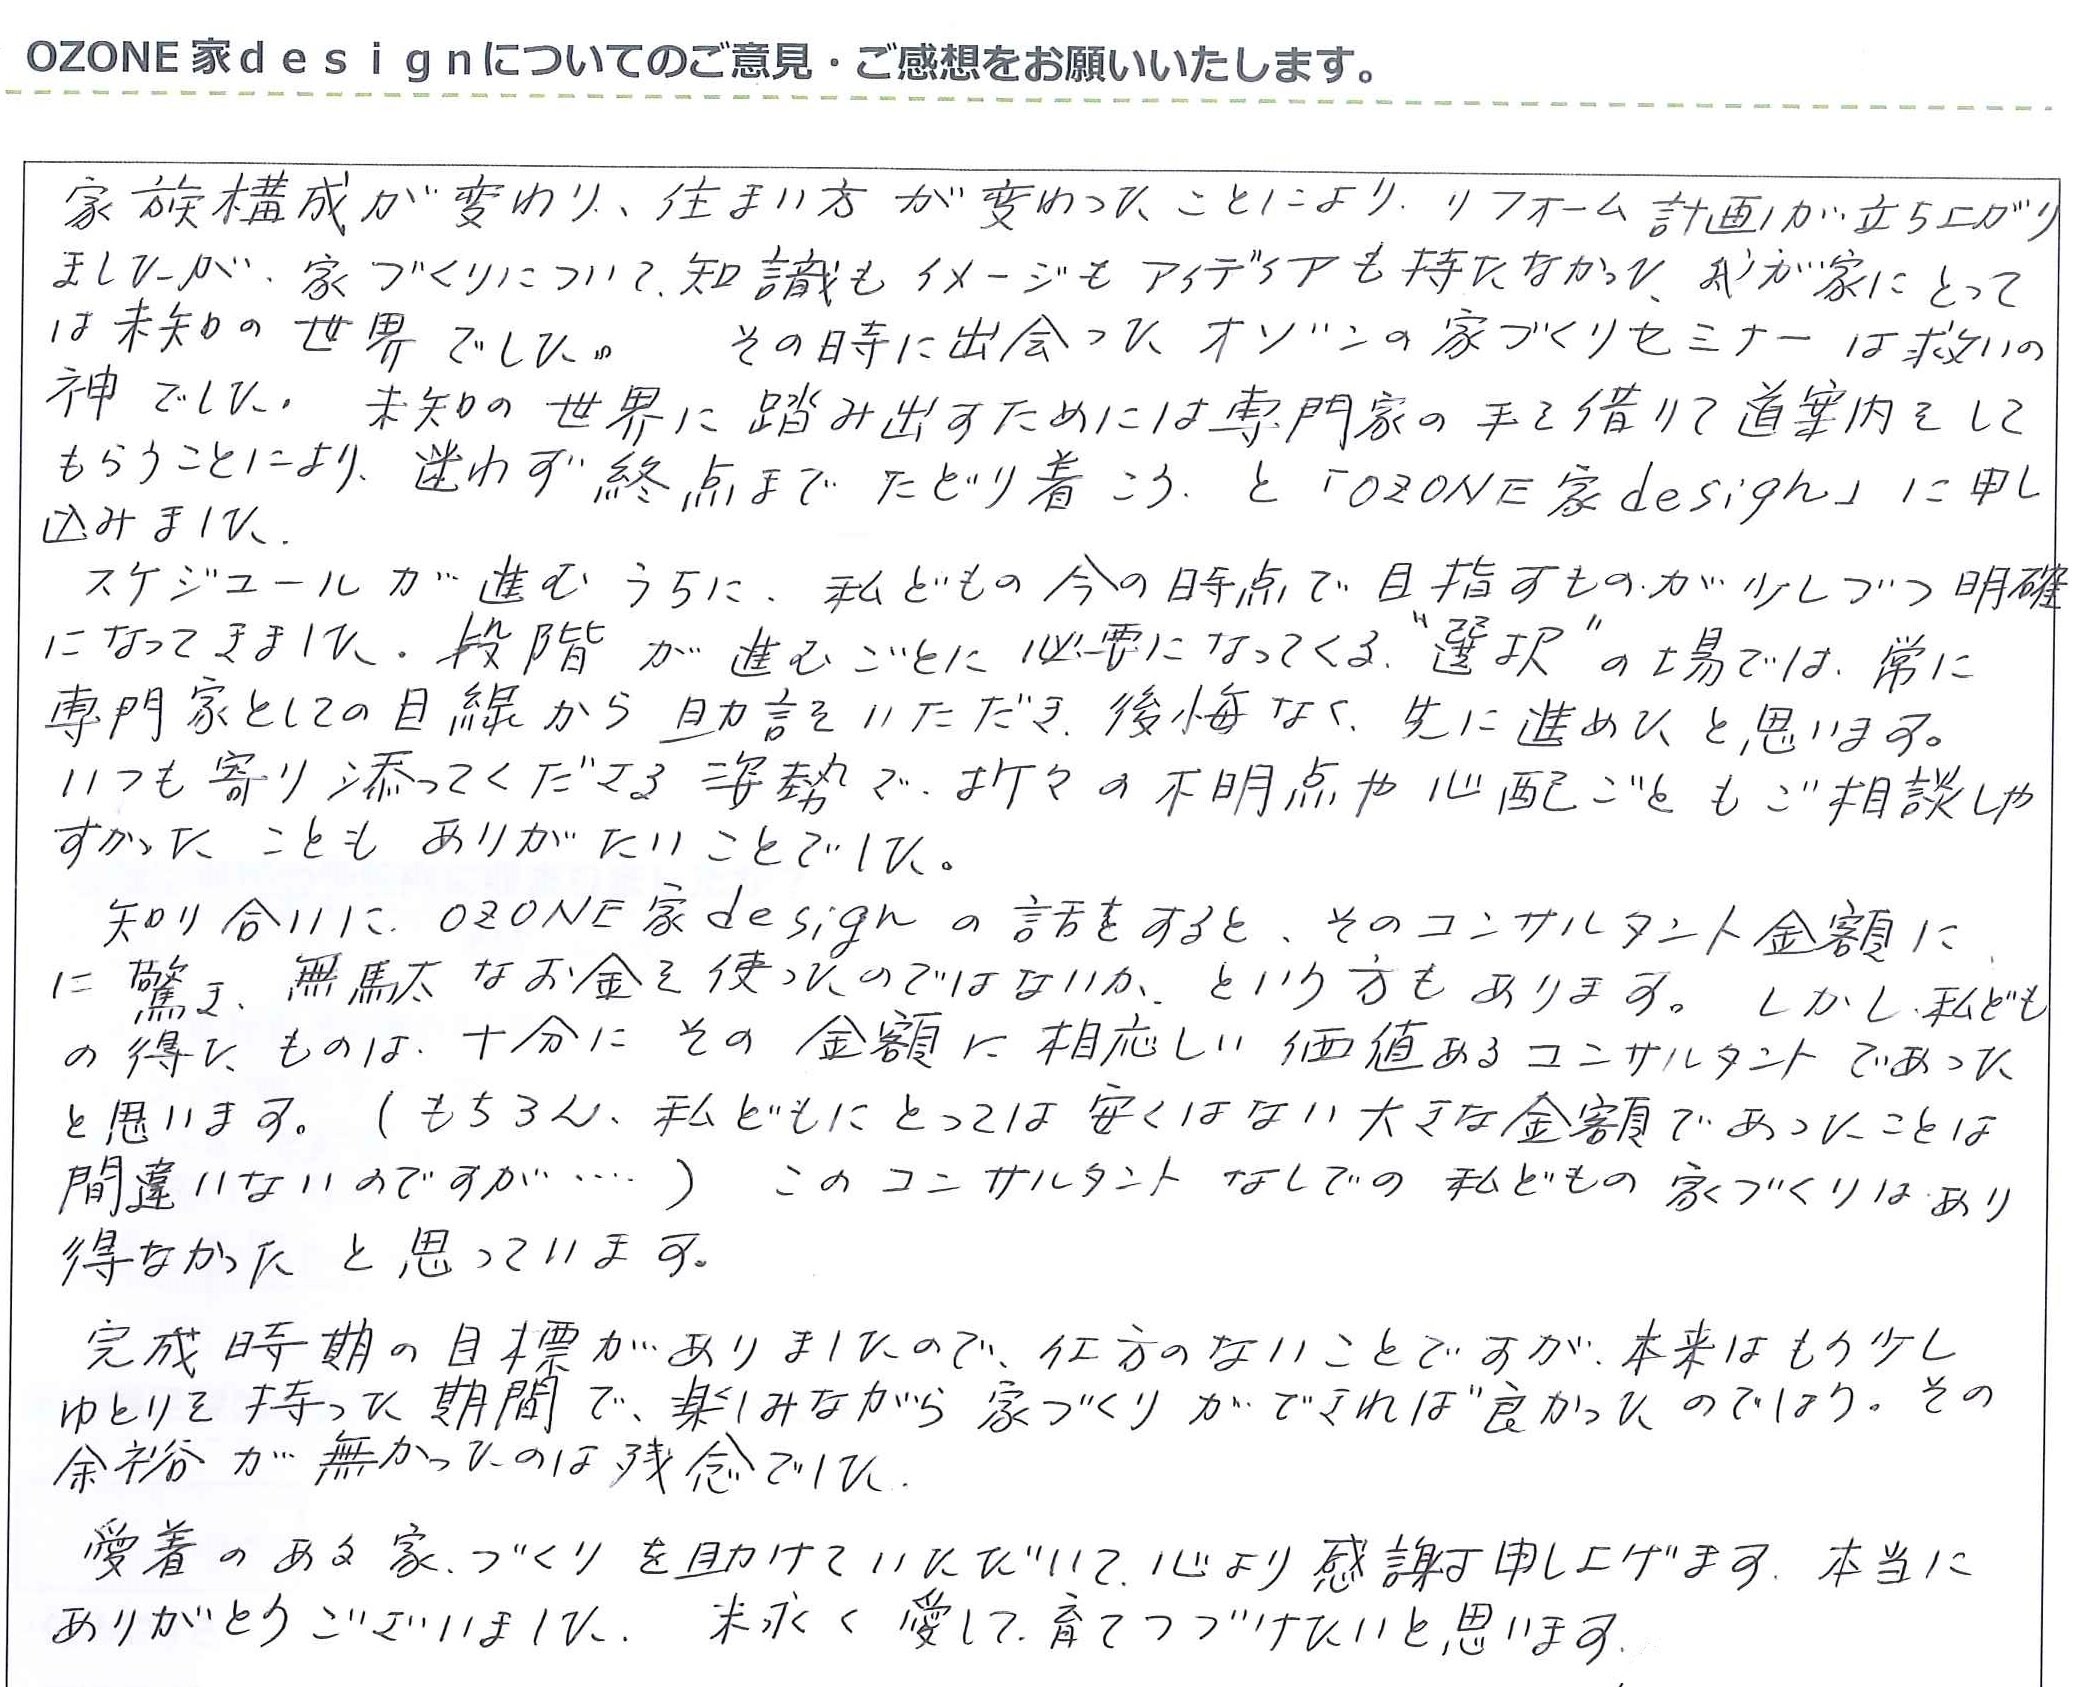 OZONE家designについてのご意見・ご感想をお願いいたします。
家族構成が変わり、住まい方が変わったことにより、リフォーム計画が立ち上がり
ましたが、家づくりについて、知識もイメージもアイディアも持たなかった、我が家にとって
は未知の世界でした。 その時に出会ったオゾンの家づくりセミナーは救いの
神でした。 未知の世界に踏み出すためには専門家の手を借りて道案内をして
もらうことにより、迷わず終点までたどり着こう、と「OZONE家design」に申し
込みました。
スケジュールが進むうちに、私どもの今の時点で目指すものが少しづつ明確
になってきました。段階が進むごとに必要になってくる、"選択"の場では、常に
専門家としての目線から助言をいただき、後悔なく、先に進めたと思います。
いつも寄り添ってくださる姿勢で、折々の不明点や心配ごともご相談しや
すかったこともありがたいことでした。
知り合いに、OZONE家designの話をすると、そのコンサルタント金額に、
に驚き、無駄なお金を使ったのではないか、という方もあります。 しかし、私ども
の得たものは、十分にその金額に相応しい価値あるコンサルタントであった
と思います。(もちろん、私どもにとっては安くはない大きな金額であったことは
間違いないのですが……) このコンサルタントなしでの私どもの家づくりはあり
得なかったと思っています。
完成時期の目標がありましたので、仕方のないことですが、本来はもう少し
ゆとりを持った期間で、楽しみながら家づくりができれば良かったのでしょう。その
余裕が無かったのは残念でした。
愛着のある家づくりを助けていただいて、心より感謝申し上げます。本当に
ありがとうございました。 末永く愛して、育てつづけたいと思います。